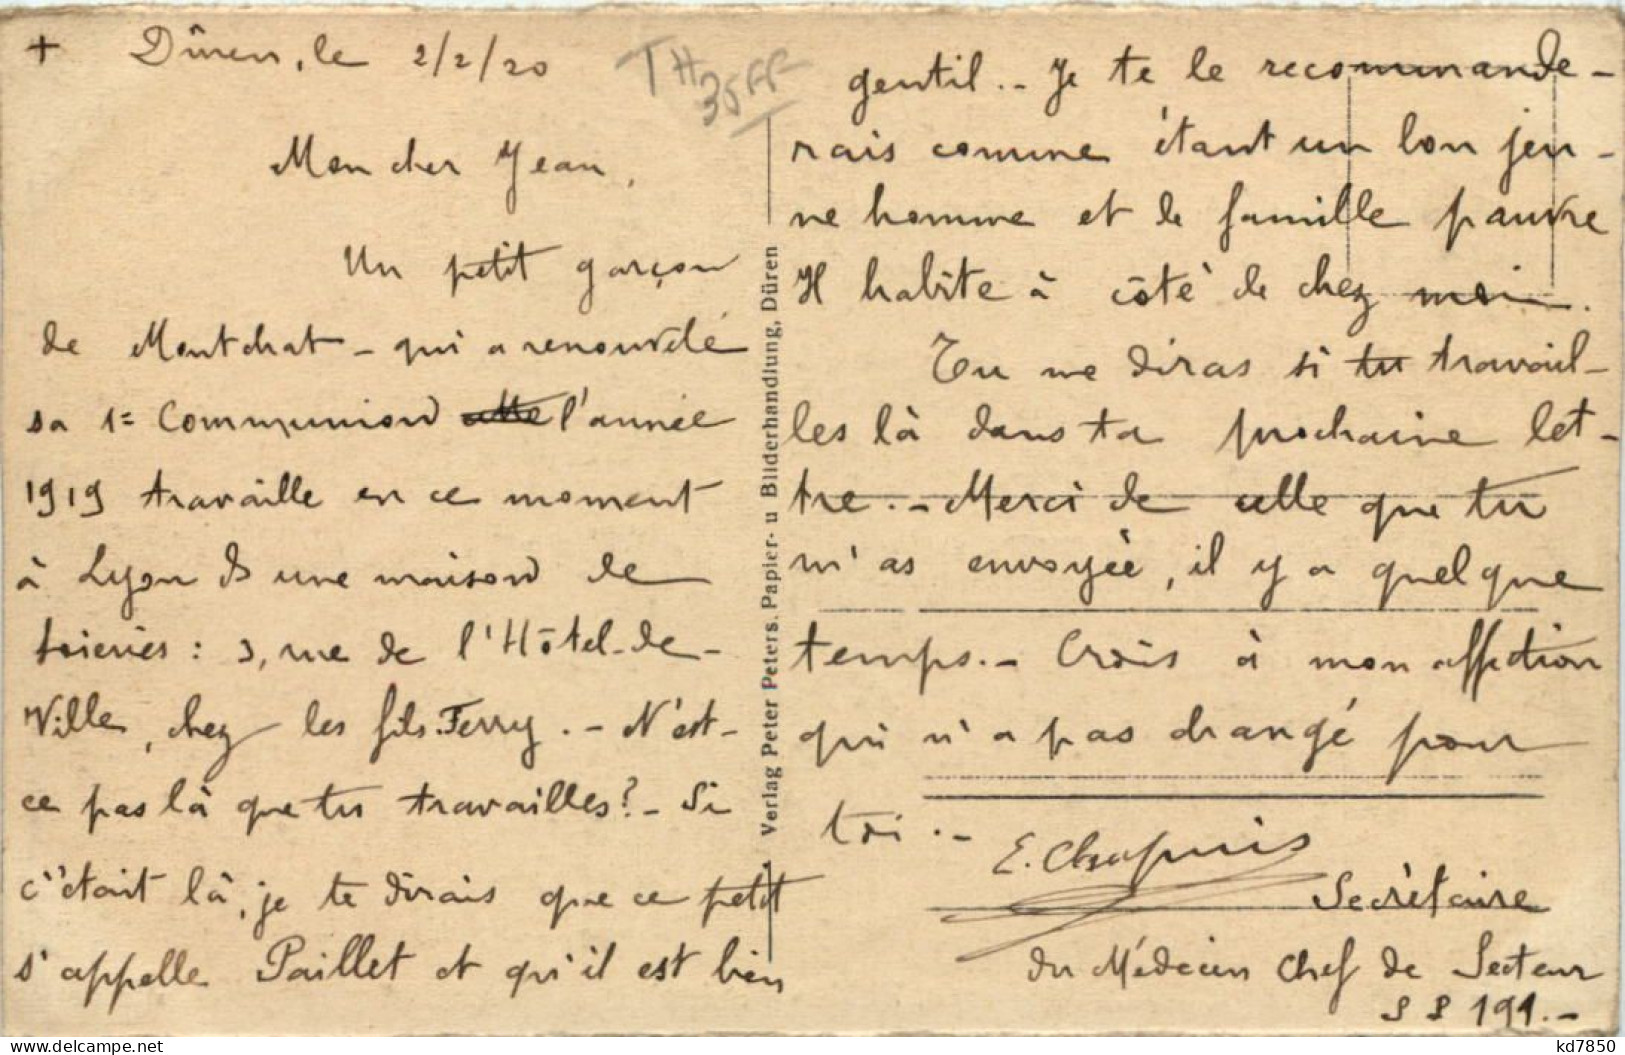 + Düren, le 2/2/20
TH 35FF
Mon cher Jean,
Un petit garçon
de Montchat - qui a renouvelé
sa 1e Communion l'année
1919 travaille en ce moment
à Lyon ds une maison de
soieries : 3, rue de l'Hôtel-de-
Ville, chez les fils Ferry. - N'est-
ce pas là que tu travailles? - Si
c'était là, je te dirais que ce petit
s'appelle Paillet et qu'il est bien
Verlag Peter Peters. Papier- u Bilderhandlung, Düren
gentil. - Je te le recommande-
rais comme étant un bon jeu-
ne homme et de famille pauvre
Il habite à côté de chez moi.
Tu me diras si tu travail-
les là dans ta prochaine let-
tre. - Merci de celle que tu
m'as envoyée, il y a quelque
temps. - Crois à mon affection
qui n'a pas changé pour
toi. -
E. Chapuis
Secrétaire
du Médecin Chef de Secteur
S P 191. -
kd7850